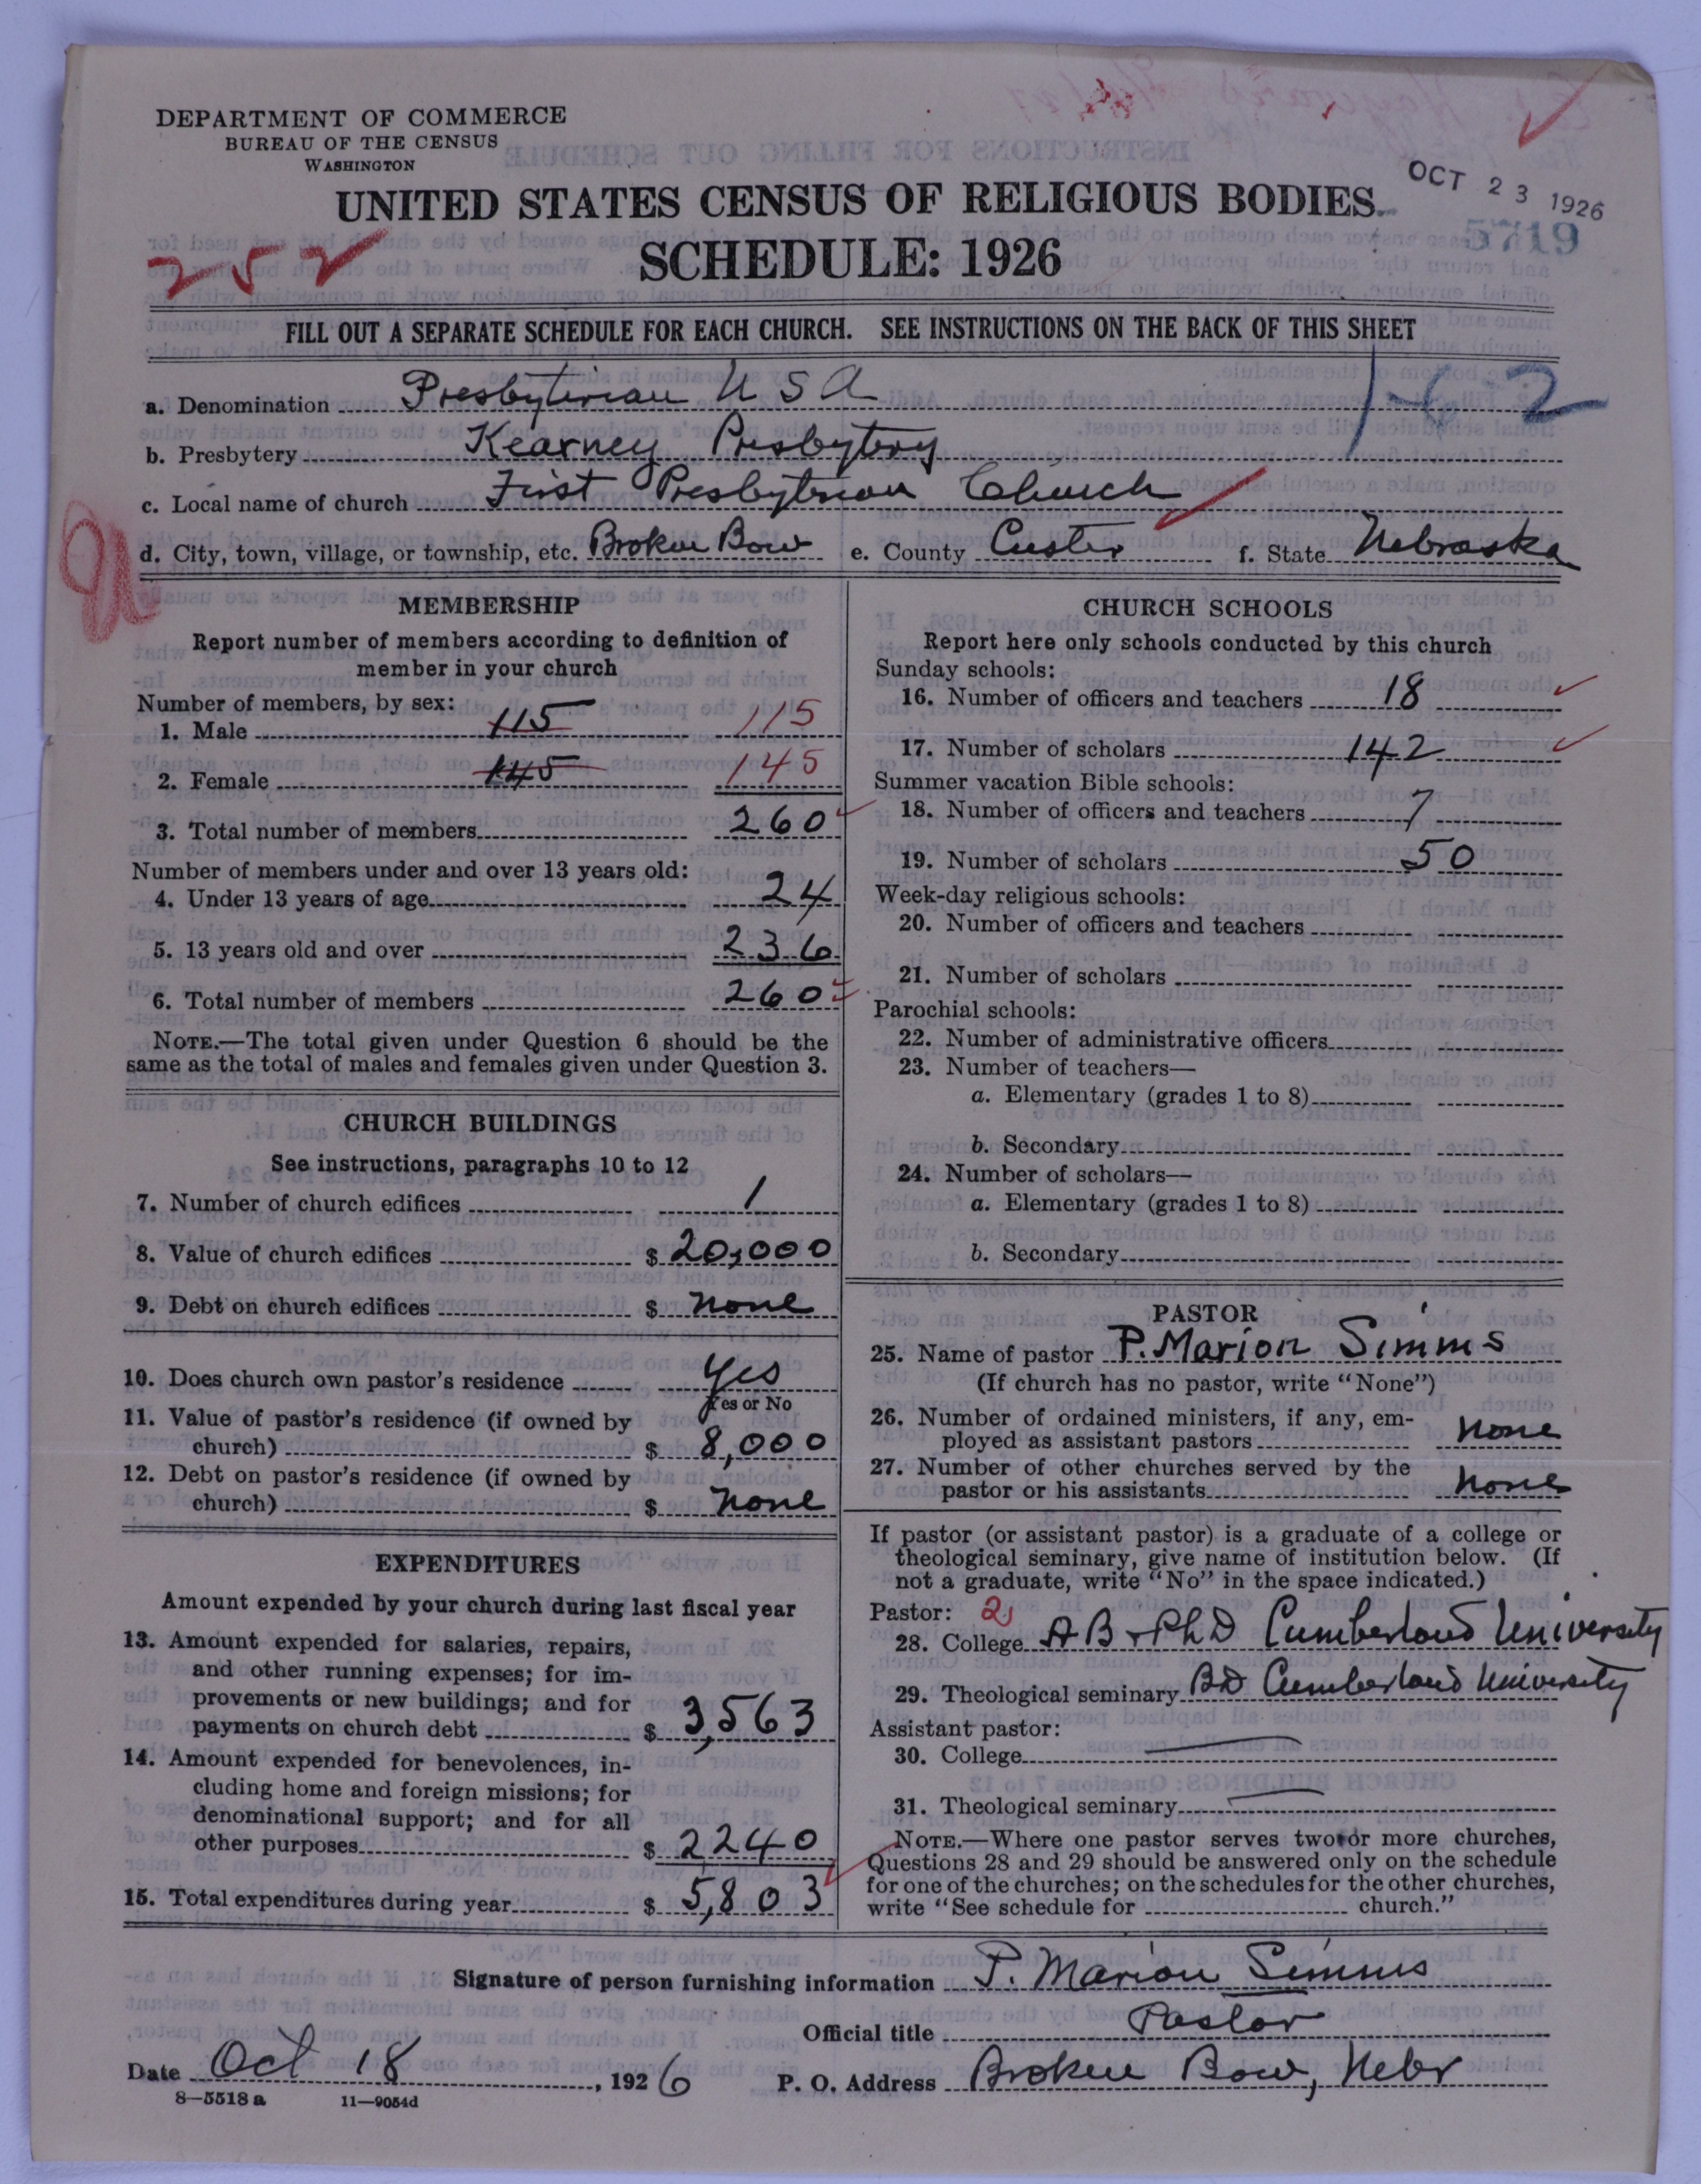 DEPARTMENT OF COMMERCE
BUREAU OF THE CENSUS
WASHINGTON
UNITED STATES CENSUS OF RELIGIOUS BODIES
OCT 23 1926
5719
SCHEDULE: 1926
252
FILL OUT A SEPARATE SCHEDULE FOR EACH CHURCH. SEE INSTRUCTIONS ON THE BACK OF THIS SHEET
a. Denomination Presbyterian U S A
b. Presbytery Kearney Presbytery
c. Local name of church First Presbyterian Church
d. City, town, village, or township, etc. Broken Bow e. County Custer f. State Nebraska
MEMBERSHIP
Report number of members according to definition of
member in your church
Number of members, by sex:
1. Male 115 115
2. Female 145 145
3. Total number of members 260
Number of members under and over 13 years old:
4. Under 13 years of age 24
5. 13 years old and over 236
6. Total number of members 260
NOTE.—The total given under Question 6 should be the
same as the total of males and females given under Question 3.
CHURCH BUILDINGS
See instructions, paragraphs 10 to 12
7. Number of church edifices 1
8. Value of church edifices $ 20,000
9. Debt on church edifices $ none
10. Does church own pastor's residence Yes
Yes or No
11. Value of pastor's residence (if owned by
church) $ 8,000
12. Debt on pastor's residence (if owned by
church) $ none
EXPENDITURES
Amount expended by your church during last fiscal year
13. Amount expended for salaries, repairs,
and other running expenses; for im-
provements or new buildings; and for
payments on church debt $ 3,563
14. Amount expended for benevolences, in-
cluding home and foreign missions; for
denominational support; and for all
other purposes $ 2240
15. Total expenditures during year $ 5,803
CHURCH SCHOOLS
Report here only schools conducted by this church
Sunday schools:
16. Number of officers and teachers 18
17. Number of scholars 142
Summer vacation Bible schools:
18. Number of officers and teachers 7
19. Number of scholars 50
Week-day religious schools:
20. Number of officers and teachers
21. Number of scholars
Parochial schools:
22. Number of administrative officers
23. Number of teachers—
a. Elementary (grades 1 to 8)
b. Secondary
24. Number of scholars—
a. Elementary (grades 1 to 8)
b. Secondary
PASTOR
25. Name of pastor P. Marion Simms
(If church has no pastor, write "None")
26. Number of ordained ministers, if any, em-
ployed as assistant pastors none
27. Number of other churches served by the
pastor or his assistants none
If pastor (or assistant pastor) is a graduate of a college or
theological seminary, give name of institution below. (If
not a graduate, write "No" in the space indicated.)
Pastor: 2
28. College AB + PhD Cumberland University
29. Theological seminary BD Cumberland University
Assistant pastor:
30. College
31. Theological seminary
NOTE.—Where one pastor serves two or more churches,
Questions 28 and 29 should be answered only on the schedule
for one of the churches; on the schedules for the other churches,
write "See schedule for church."
Signature of person furnishing information P. Marion Simms
Official title Pastor
Date Oct 18, 1926 P. O. Address Broken Bow, Nebr
8—5518 a 11—9054d